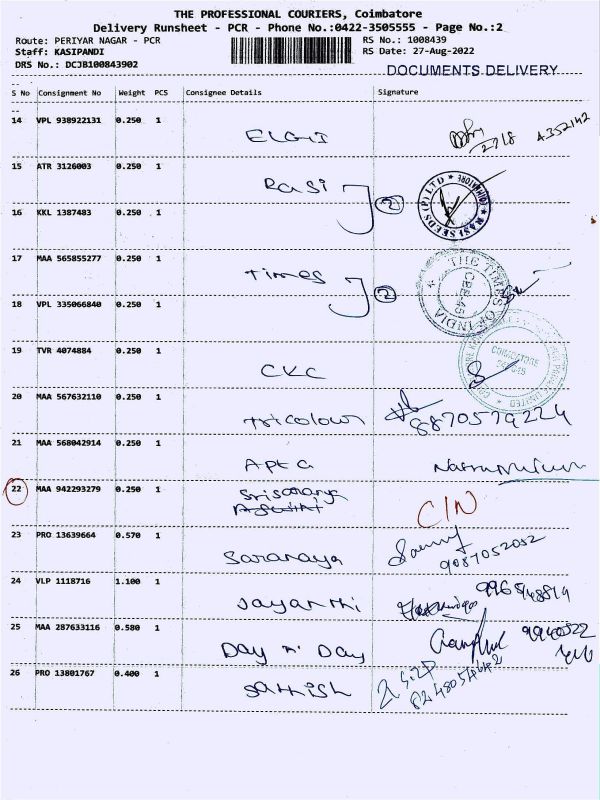 THE PROFESSIONAL COURIERS, Coimbatore
Delivery Runsheet - PCR - Phone No.:0422-3505555 - Page No.:2
Route: PERIYAR NAGAR - PCR
RS No.: 1008439
Staff: KASIPANDI
RS Date: 27-Aug-2022
DRS No.: DCJB100843902
DOCUMENTS DELIVERY
S No Consignment No Weight PCS Consignee Details Signature
14 VPL 938922131 0.250 1
ELGI 27/8 A352142
15 ATR 3126003 0.250 1
Rasi 2
RASI SEEDS (P) LTD * COIMBATORE *
16 KKL 1387483 0.250 1
17 MAA 565855277 0.250 1
Times 2
THE TIMES OF INDIA
CBE-45
18 VPL 335066840 0.250 1
19 TVR 4074884 0.250 1
CKC
COIMBATORE
LIMITED
20 MAA 567632110 0.250 1
Tricolour 8870579224
21 MAA 568042914 0.250 1
22 MAA 942293279 0.250 1
CIN
23 PRO 13639664 0.570 1
Saranaya 9087052052
24 VLP 1118716 1.100 1
Jayanthi
25 MAA 287633116 0.580 1
Day n' Day
26 PRO 13801767 0.400 1
Sathish